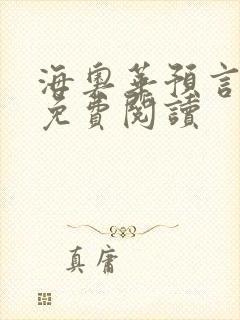 海奧華預言
免費閱讀
真庸